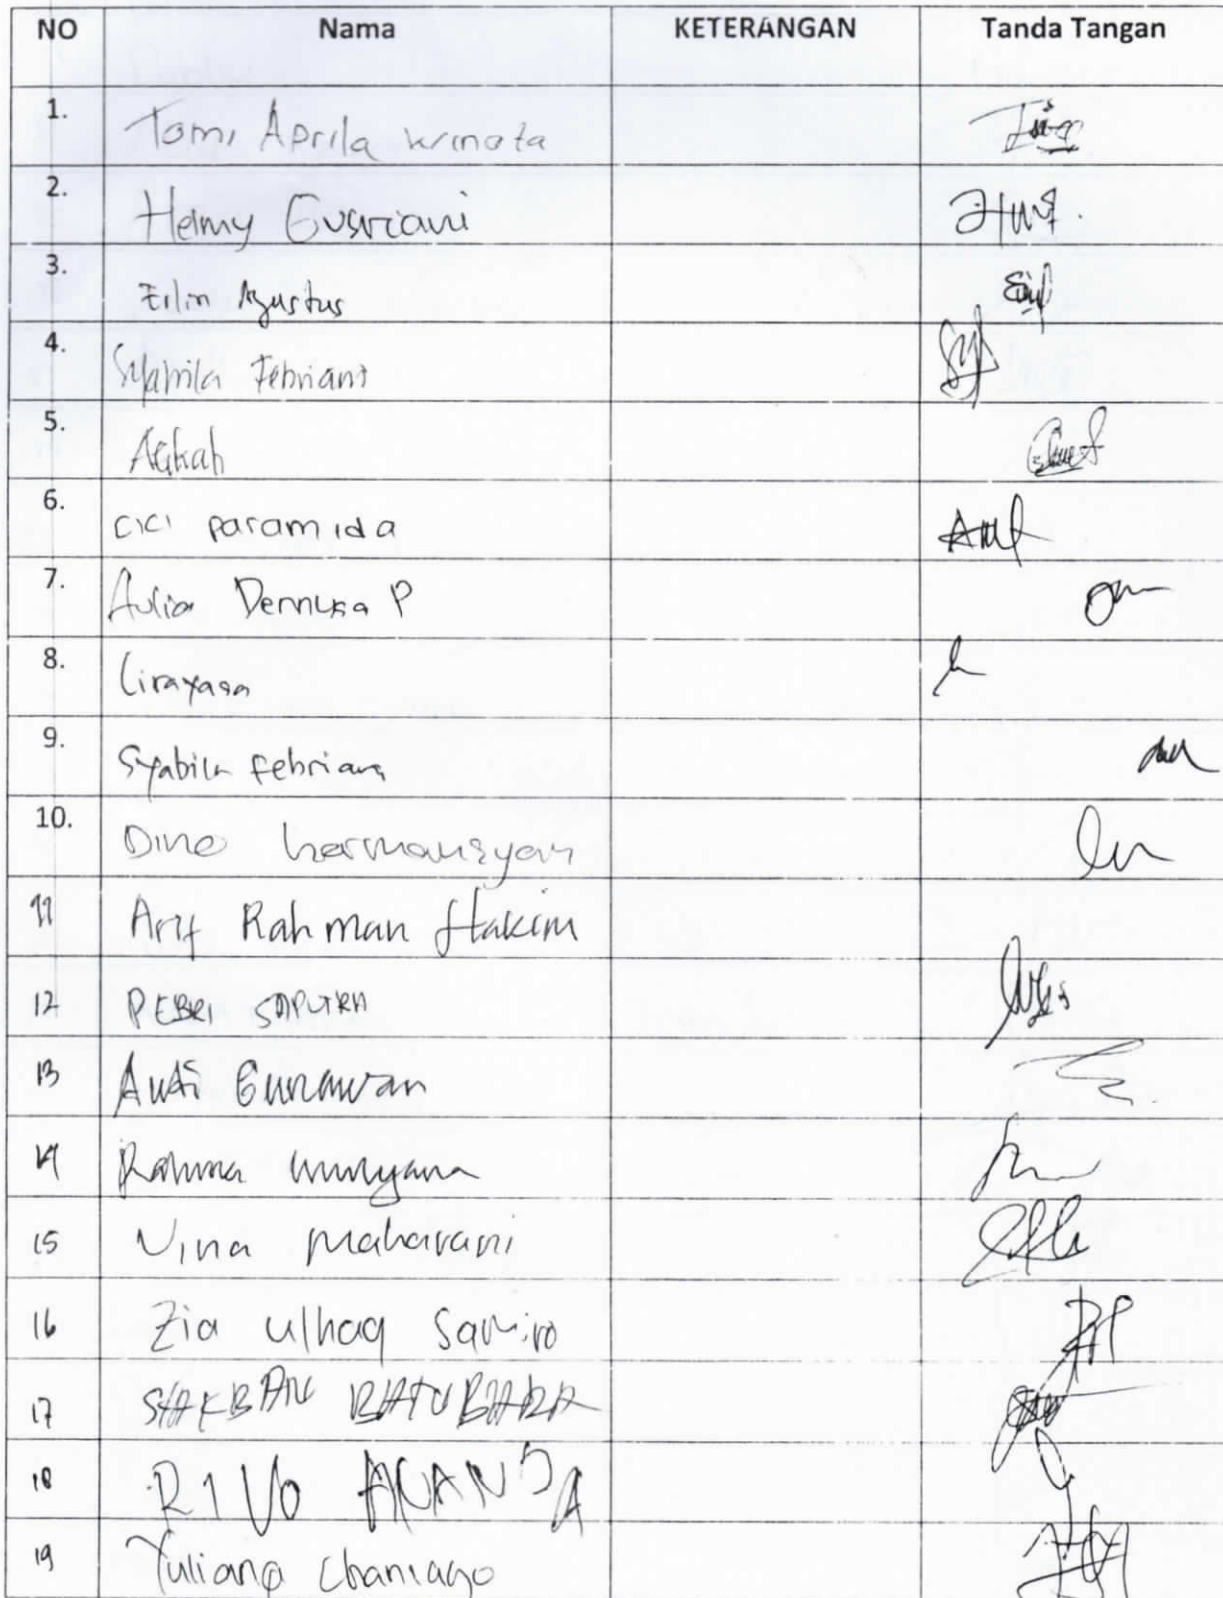 NO Nama KETERANGAN Tanda Tangan
1. Tomi Aprila winata
2. Helmy Gusriani
3. Erlin Agustus
4. Syabila Febriani
5. 
6. Cici paramida
7. Aulia P
8. Lirayasa
9. Syabila febriana
10. Dino hermansyah
11 Arif Rahman Hakim
12 PEBRI SAPUTRA
13 Gunawan
14 Rahma
15 Vina maharani
16 Zia ulhaq
17 BATUBARA
18 RIVO ANANDA
19 Yuliana Chaniago